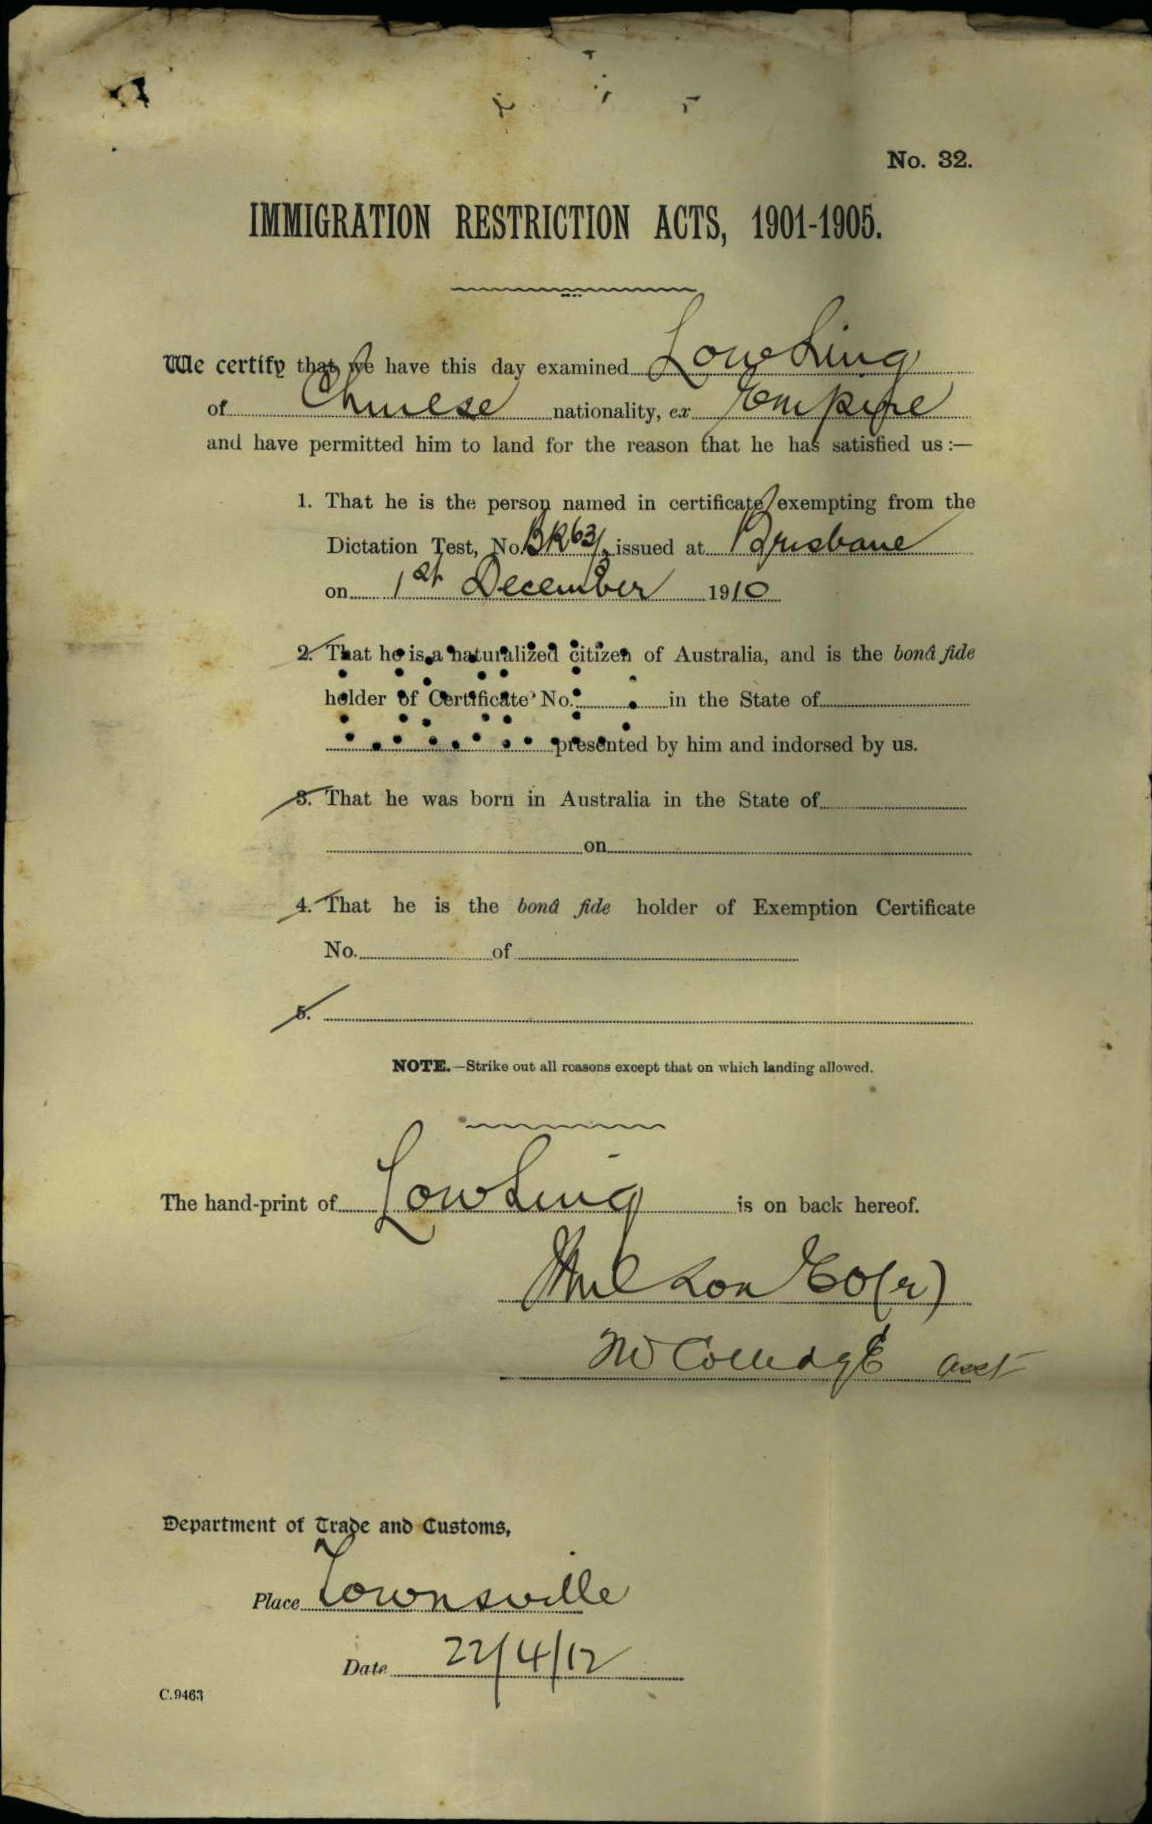 No. 32.
IMMIGRATION RESTRICTION ACTS, 1901-1905.
We certify that we have this day examined Low Ling
of Chinese nationality, ex Empire
and have permitted him to land for the reason that he has satisfied us :—
1. That he is the person named in certificate exempting from the
Dictation Test, No. BR63/ issued at Brisbane
on 1st December 1910
2. That he is a naturalized citizen of Australia, and is the bonâ fide
holder of Certificate No. in the State of
presented by him and indorsed by us.
3. That he was born in Australia in the State of
on
4. That he is the bonâ fide holder of Exemption Certificate
No. of
5.
NOTE.—Strike out all reasons except that on which landing allowed.
The hand-print of Low Ling is on back hereof.
Asst
Department of Trade and Customs,
Place Townsville
Date 22/4/12
C.9463